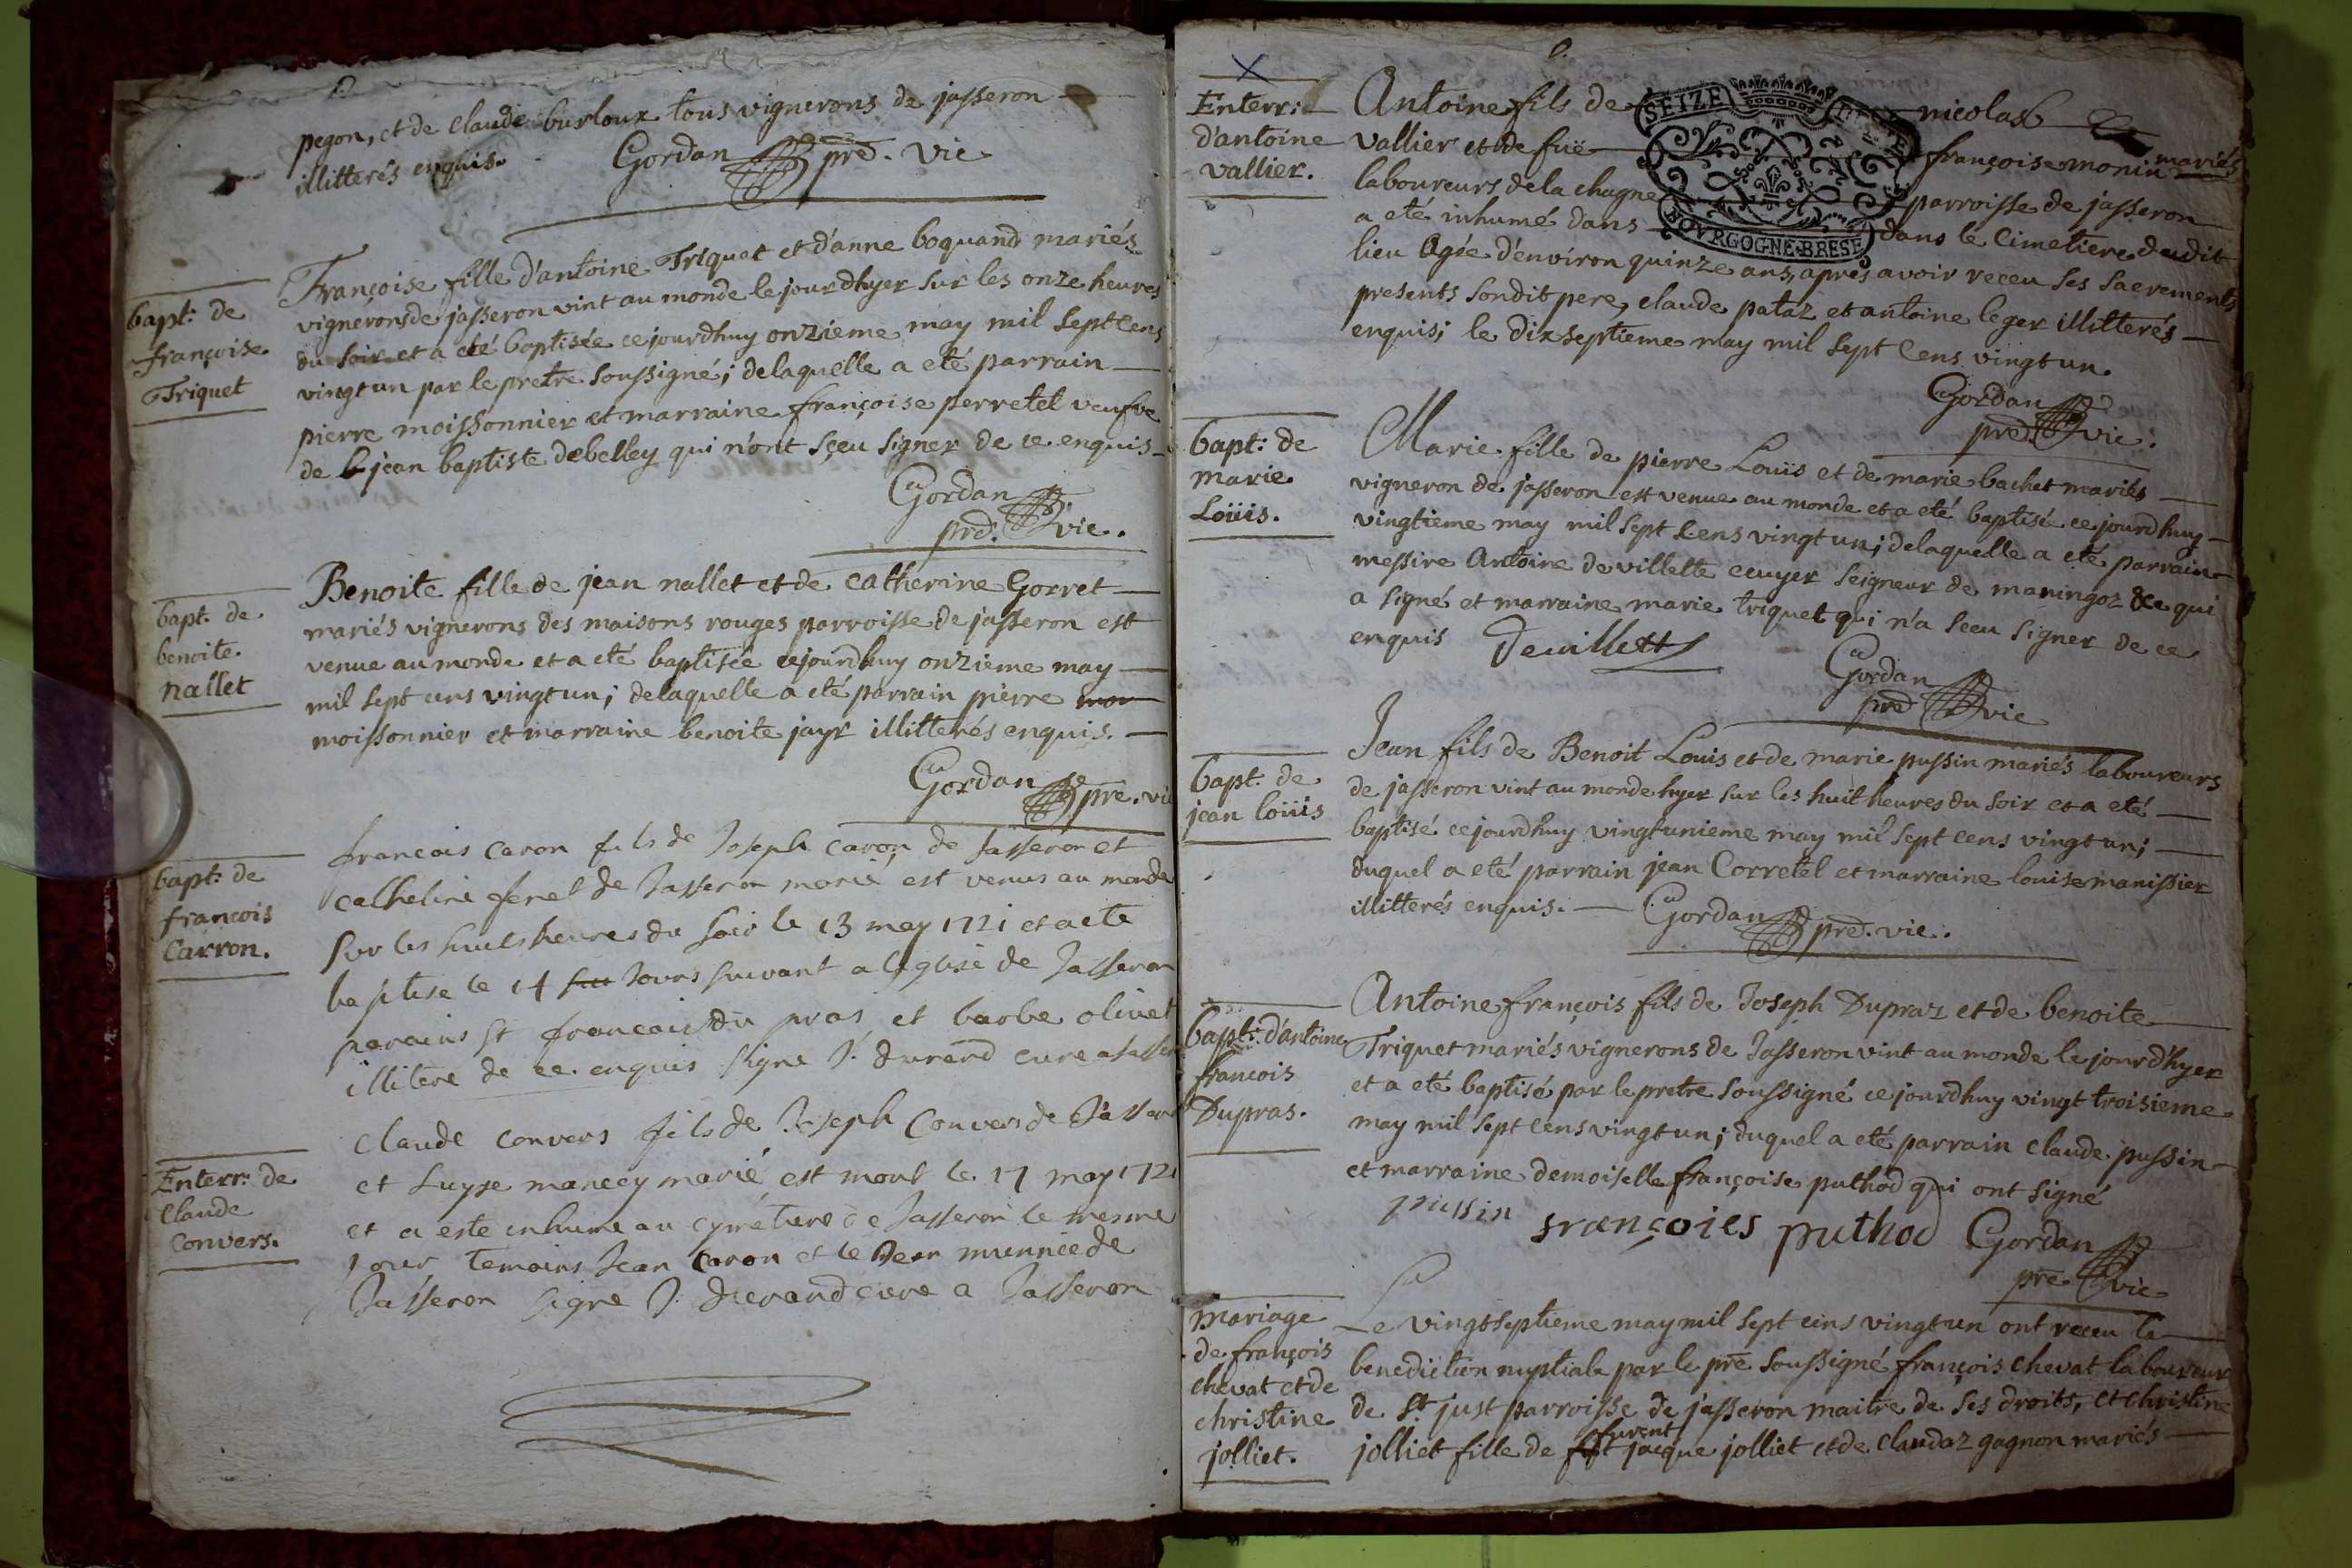 pegon, et de claude burloux tous vignerons de jasseron
illitterés enquis.
Gordan pre. vic
bapt: de
françoise
Triquet
Françoise fille d'antoine Triquet et d'anne boquand mariés
vignerons de jasseron vint au monde le jour d'hyer sur les onze heures
du soir et a eté baptisée ce jourdhuy onzieme may mil sept cens
vingt un par le pretre soussigné; de laquelle a eté parrain
pierre moissonnier et marraine françoise perretel veufve
de jean baptiste debelley qui n'ont sçeu signer de ce enquis
Gordan
pre. vic.
bapt: de
benoite
nallet
Benoite fille de jean nallet et de catherine Gorret
mariés vignerons des maisons rouges parroisse de jasseron est
venue au monde et a eté baptisée ce jourdhuy onzieme may
mil sept cens vingt un; de laquelle a eté parrain pierre mon
moissonnier et marraine benoite jayr illitterés enquis.
Gordan pre. vic
bapt: de
francois
Carron.
francois caron fils de Joseph caron de Jasseron et
catheline fenet de Jasseron marié est venus au monde
sur les huits heures du soir le 13 may 1721 et a ete
baptise le 14 sui Jours suivant a leglise de Jasseron
parains st francois du pras et barbe olivet
illitere de ce enquis signe J. durand cure a Jasse
Enterr: de
Claude
Convers.
claude convers fils de Joseph Convers de Jasseron
et Luyse marcey marié est mort le 17 may 1721
et a este inhume au cymetiere de Jasseron le mesme
jour temoins Jean Caron et le munnie de
Jasseron signe J. durand cure a Jasseron
Enterr:
d'antoine
vallier.
Antoine fils de nicolas
SEIZE
vallier et de fuë françoise monin mariés
laboureurs de la chagne parroisse de jasseron
a eté inhumé dans dans le Cimetiere dudit
BOVRGOGNE·BRESE
lieu Agée d'environ quinze ans, après avoir receu ses sacrements
presents sondit pere, claude pataz et antoine leger illitterés
enquis; le dix septieme may mil sept cens vingt un.
Gordan
pre. vic.
bapt: de
marie
Loüis.
Marie fille de pierre Louïs et de marie bachet mariés
vigneron de jasseron est venue au monde et a eté baptisée ce jourdhuy
vingtieme may mil sept cens vingt un; de laquelle a eté parrain
messire Antoine de villette ecuyer seigneur de maningoz &c qui
a signé et marraine marie triquet qui n'a sceu signer de ce
enquis Devillette
Gordan
pre vic
bapt. de
jean loüis
Jean fils de Benoit Louis et de marie pussin mariés laboureurs
de jasseron vint au monde hyer sur les huit heures du soir et a eté
baptisé ce jourdhuy vingt unieme may mil sept cens vingt un;
duquel a eté parrain jean Corretel et marraine louise manissier
illitterés enquis. Gordan pre. vic.
bapt: d'antoine
francois
Dupras.
Antoine françois fils de Joseph Dupraz et de benoite
Triquet mariés vignerons de Jasseron vint au monde le jour d'hyer
et a eté baptisé par le pretre soussigné ce jourdhuy vingt troisieme
may mil sept cens vingt un; duquel a eté parrain claude pussin
et marraine demoiselle françoise puthod qui ont signé
pussin françoies puthod Gordan
pre vic
mariage
de françois
chevat et de
christine
jolliet.
Le vingt septieme may mil sept cens vingt un ont receu la
benediction nuptiale par le pre soussigné françois chevat laboureur
de St just parroisse de jasseron maitre de ses droits, et christine
furent
jolliet fille de jacque jolliet et de claudaz gagnon mariés